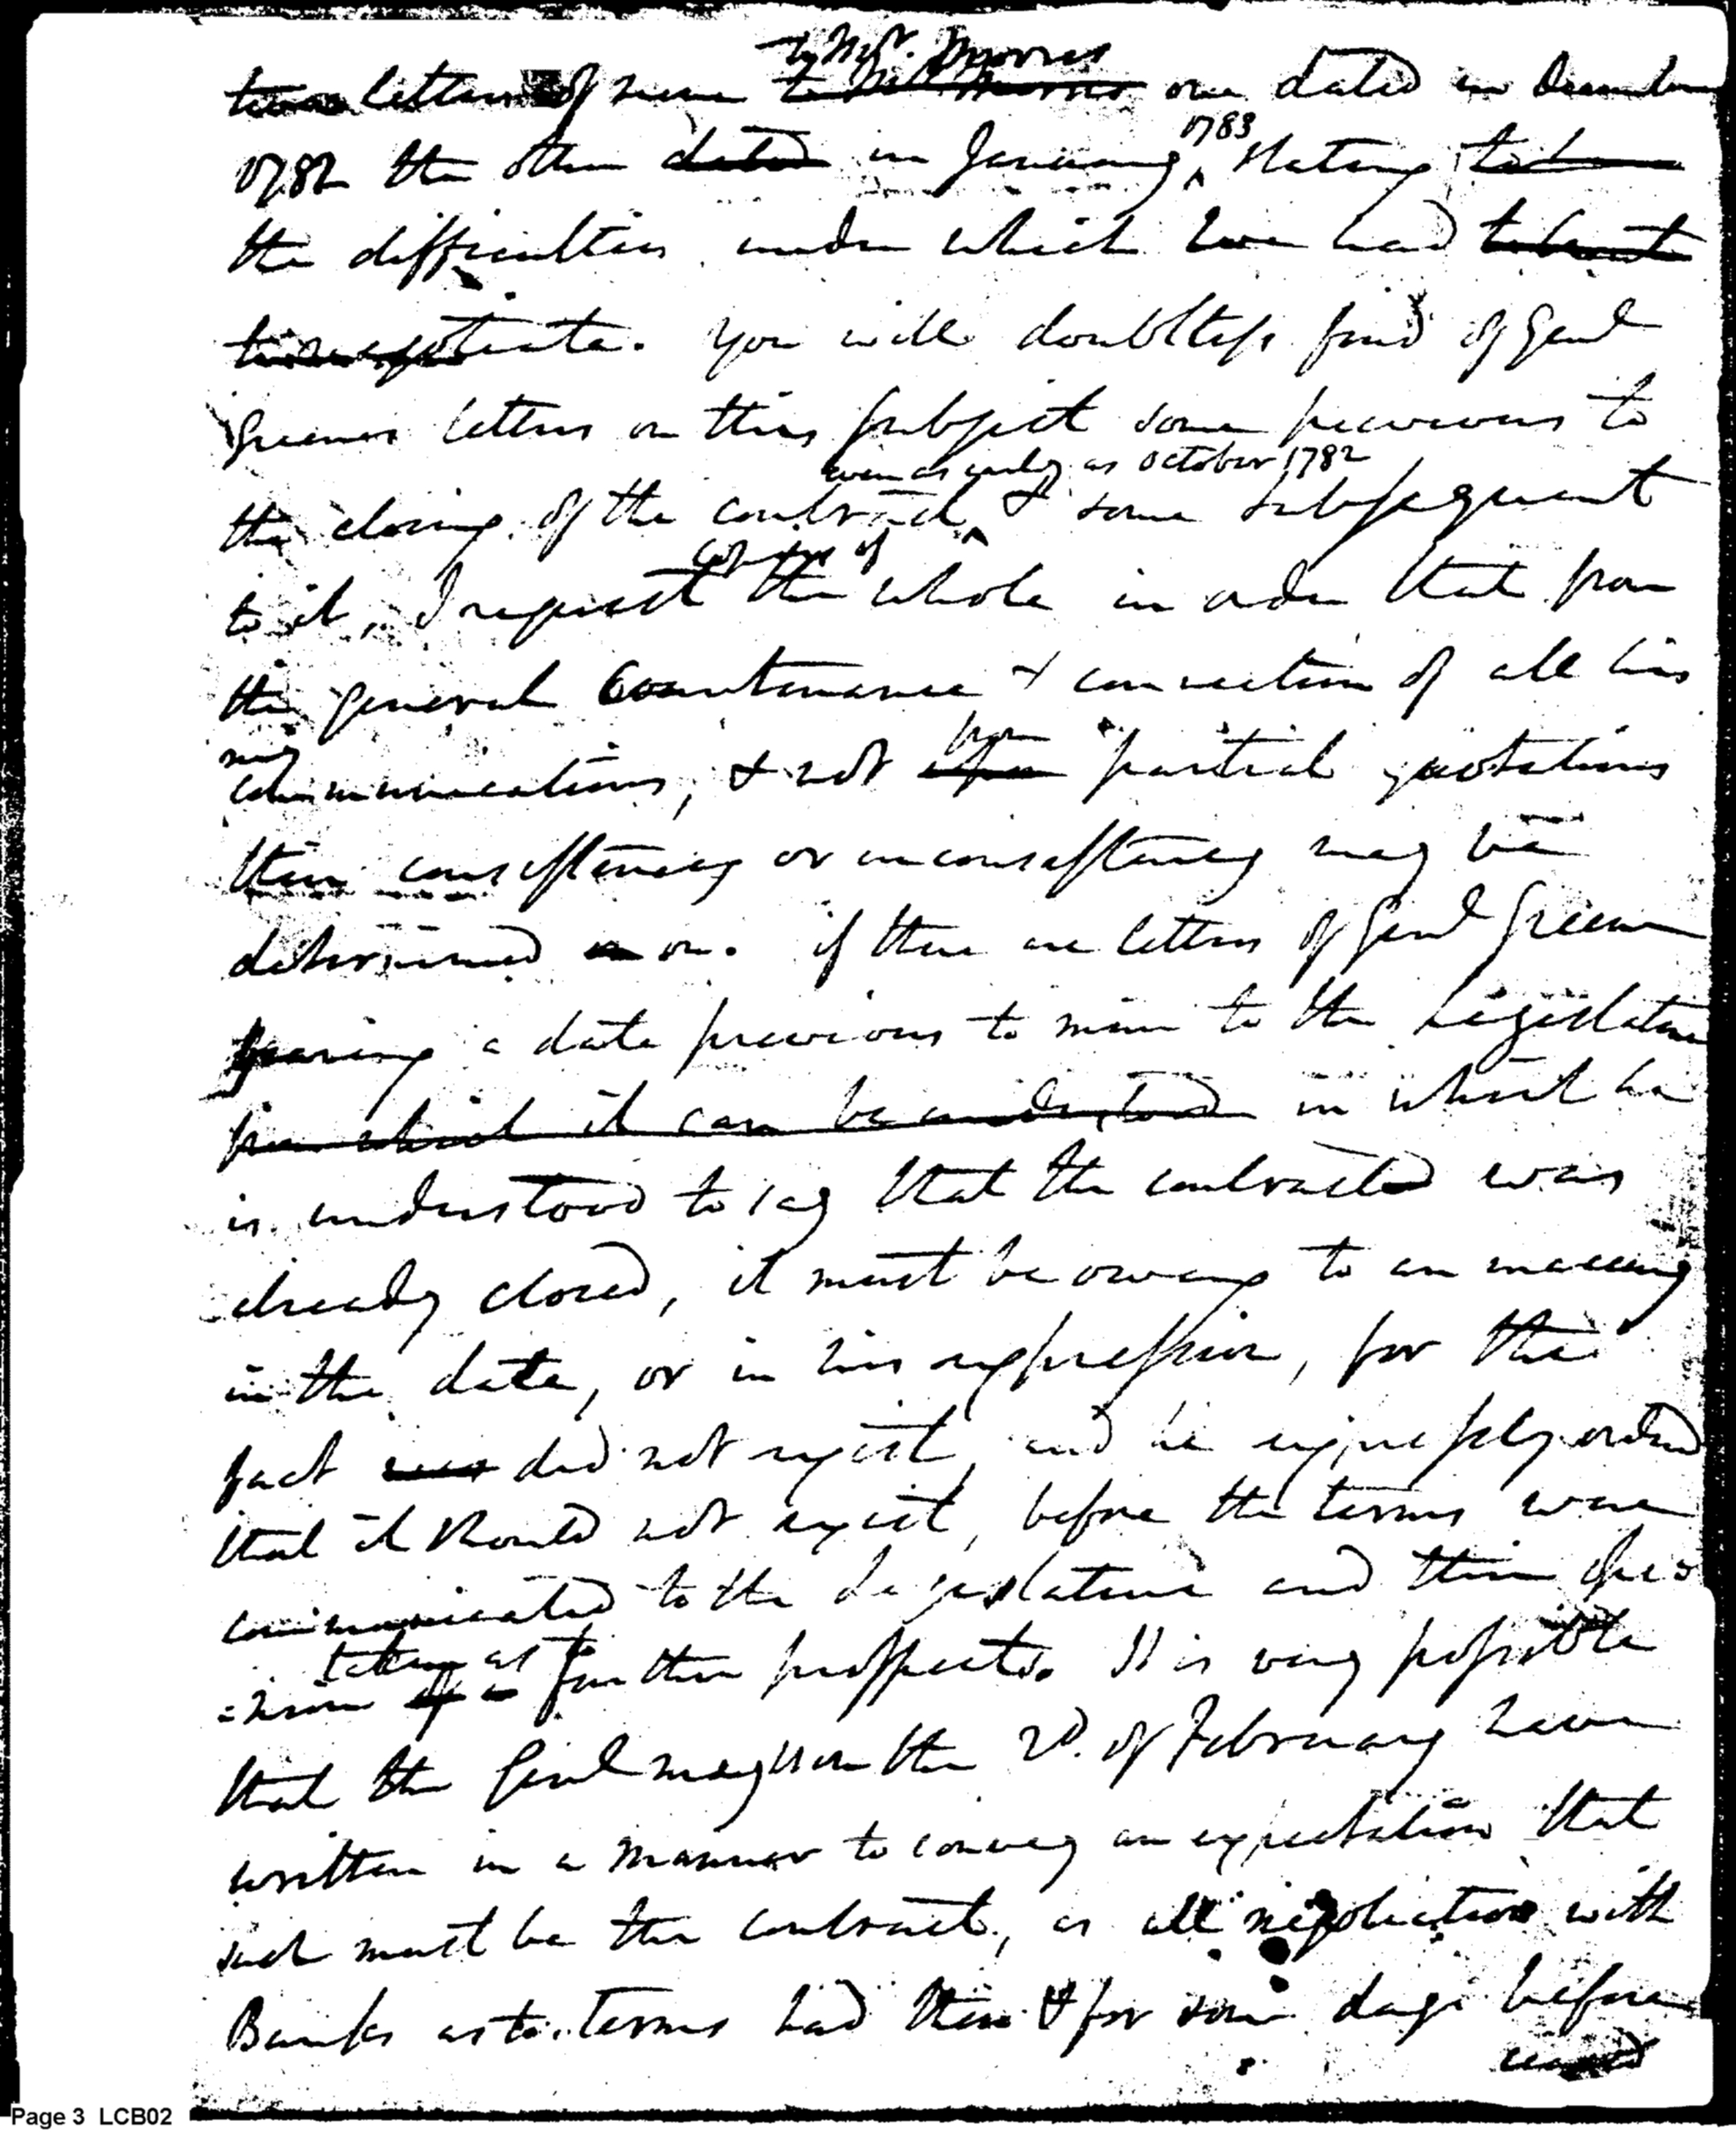 to Mr. Morris
two letters of mine to Mr Morris one dated in December
1782 the other dated in January 1783 stating to have
the difficulties under which we had to treat
to negotiate. You will doubtless find of Genl
Greenes letters on this subject some previous to
even as early as October 1782
the closing of the contract, & some subsequent
copies of
to it, I request the whole in order that from
the general countenance & connection of all his
my
communications, & not upon from partial quotations
their consistency or inconsistency may be
determined on. if there are letters of Genl Greene
bearing a date previous to mine to the Legislature
from which it can be understood in which he
is understood to say that the contract was
already closed, it must be owing to an inaccuracy
in the date, or in his expression, for the
fact was did not exist, and he expressly ordered
that it should not exist, before the terms were
communicated to the Legislature and their deci
taken as to
=sion of a further prospects. It is very possible
that the Genl may on the 2d. of February have
written in a manner to convey an expectation that
such must be the contract, as all negotiation with
Banks as to terms had then & for some days before
ceased
Page 3 LCB02